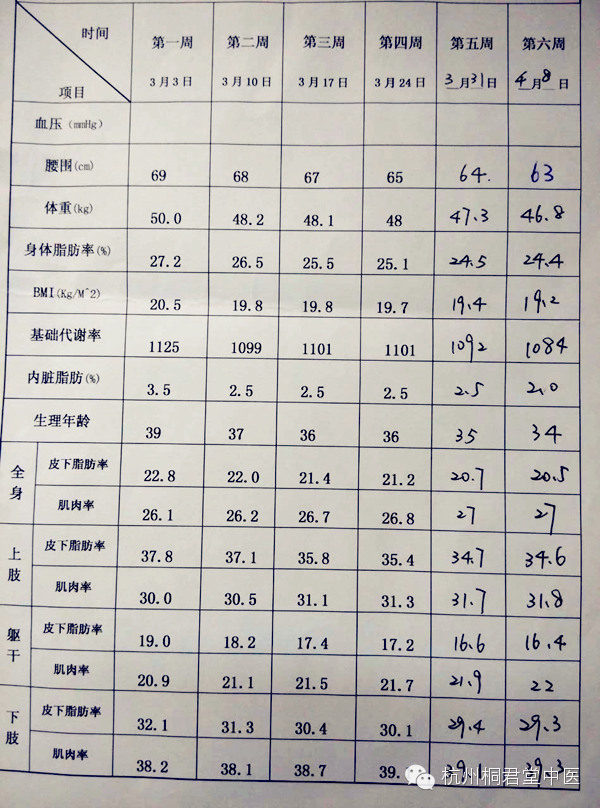 时间 第一周 第二周 第三周 第四周 第五周 第六周
项目 3月3日 3月10日 3月17日 3月24日 3月31日 4月8日
血压(mmHg)
腰围(cm) 69 68 67 65 64. 63
体重(kg) 50.0 48.2 48.1 48 47.3 46.8
身体脂肪率(%) 27.2 26.5 25.5 25.1 24.5 24.4
BMI(Kg/M^2) 20.5 19.8 19.8 19.7 19.4 19.2
基础代谢率 1125 1099 1101 1101 1092 1084
内脏脂肪(%) 3.5 2.5 2.5 2.5 2.5 2.0
生理年龄 39 37 36 36 35 34
全身 皮下脂肪率 22.8 22.0 21.4 21.2 20.7 20.5
肌肉率 26.1 26.2 26.7 26.8 27 27
上肢 皮下脂肪率 37.8 37.1 35.8 35.4 34.7 34.6
肌肉率 30.0 30.5 31.1 31.3 31.7 31.8
躯干 皮下脂肪率 19.0 18.2 17.4 17.2 16.6 16.4
肌肉率 20.9 21.1 21.5 21.7 21.9 22
下肢 皮下脂肪率 32.1 31.3 30.4 30.1 29.4 29.3
肌肉率 38.2 38.1 38.7
杭州桐君堂中医